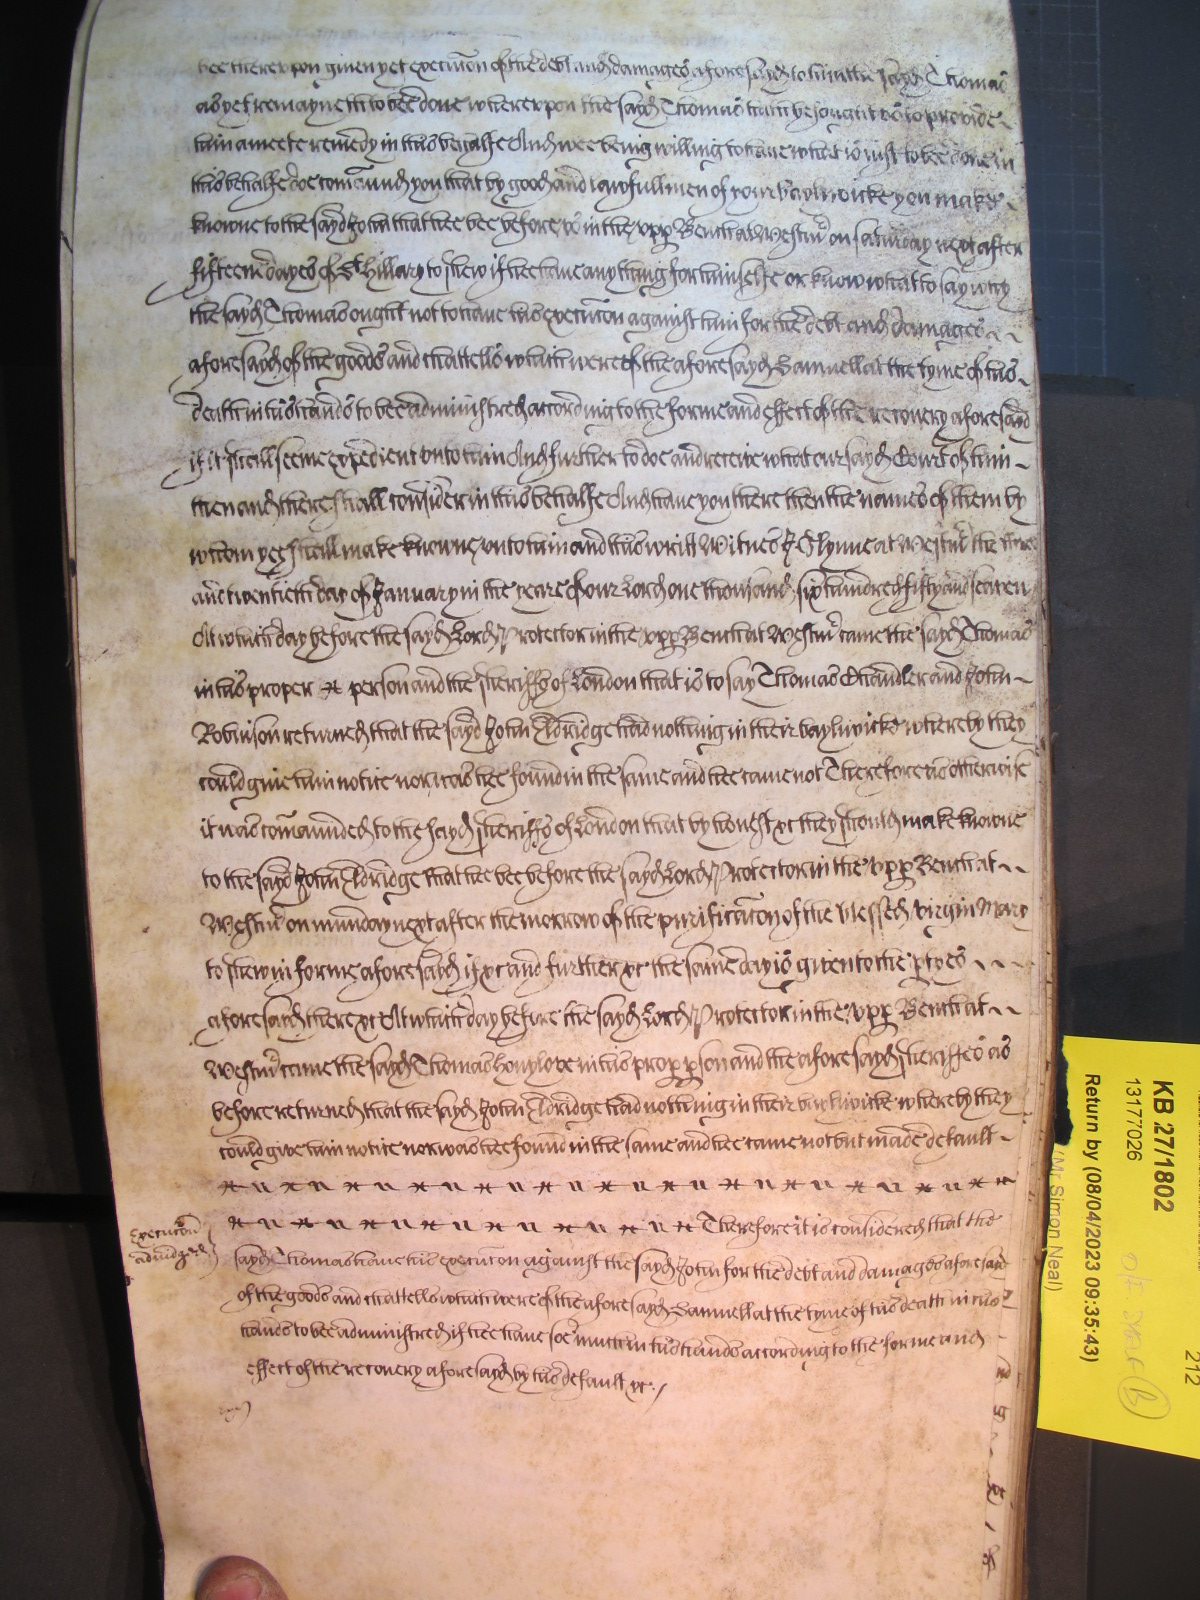 bee thereupon given yet execucon of the debt and damages aforesayd to him the sayd Thomas
as yet remayneth to bee done whereupon the sayd Thomas hath besought us to provide
him a meete remedy in this behalfe And wee being willing to have what is just to bee done in
this behalfe doe comaund you that by good and lawfull men of your baylywicke you make
knowne to the sayd John that hee bee before us in the upp Bench at Westmr on saturday next after
fifteene dayes of St Hillary to shew if hee have any thing for himselfe or know what to say why
the sayd Thomas ought not to have his execucon against him for the debt and damages
aforesayd of the goods and chattells which were of the aforesayd Samuell at the tyme of his
death in his hands to bee administred according to the forme and effect of the recovery aforesayd
if it shall seeme expedient unto him And further to doe and receive what our sayd Court of him
then and there shall consider in this behalfe And have you there then the names of them by
whom yee shall make knowne unto him and this writt Witnes J Glynne at Westmr the
and twentieth day of January in the yeare of our Lord one thousand six hundred fifty and seaven
At which day before the sayd Lord Protector in the upp Bench at Westmr came the sayd Thomas
in his proper person and the sheriffs of London that is to say Thomas Chandler and John
Robinson returned that the sayd John Eldridge had nothing in their baylywicke whereby they
could give him notice nor was hee found in the same and hee came not Therefore as otherwise
it was comaunded to the sayd sheriffs of London that by honest &c they should make knowne
to the sayd John Eldridge that hee bee before the sayd Lord Protector in the upp Bench at
Westmr on munday next after the morrow of the purificacon of the blessed virgin Mary
to shew in forme aforesayd if &c and further &c the same day is given to the ptyes
aforesayd there &c At which day before the sayd Lord Protector in the upp Bench at
Westmr came the sayd Thomas Honylove in his prop pson and the aforesayd sheriffes as
before returned that the sayd John Eldridge had nothing in their baylywicke whereby they
could give him notice nor was hee found in the same and hee came not but made default
Execucon
adiudged
Therefore it is considered that the
sayd Thomas have his execucon against the sayd John for the debt and damages aforesayd
of the goods and chattells which were of the aforesayd Samuell at the tyme of his death in his
hands to bee administred if hee have soe much in his hands according to the forme and
effect of the recovery aforesayd by his default &c
KB 27/1802
13177026
Return by (08/04/2023 09:35:43)
(Mr Simon Neal)
212